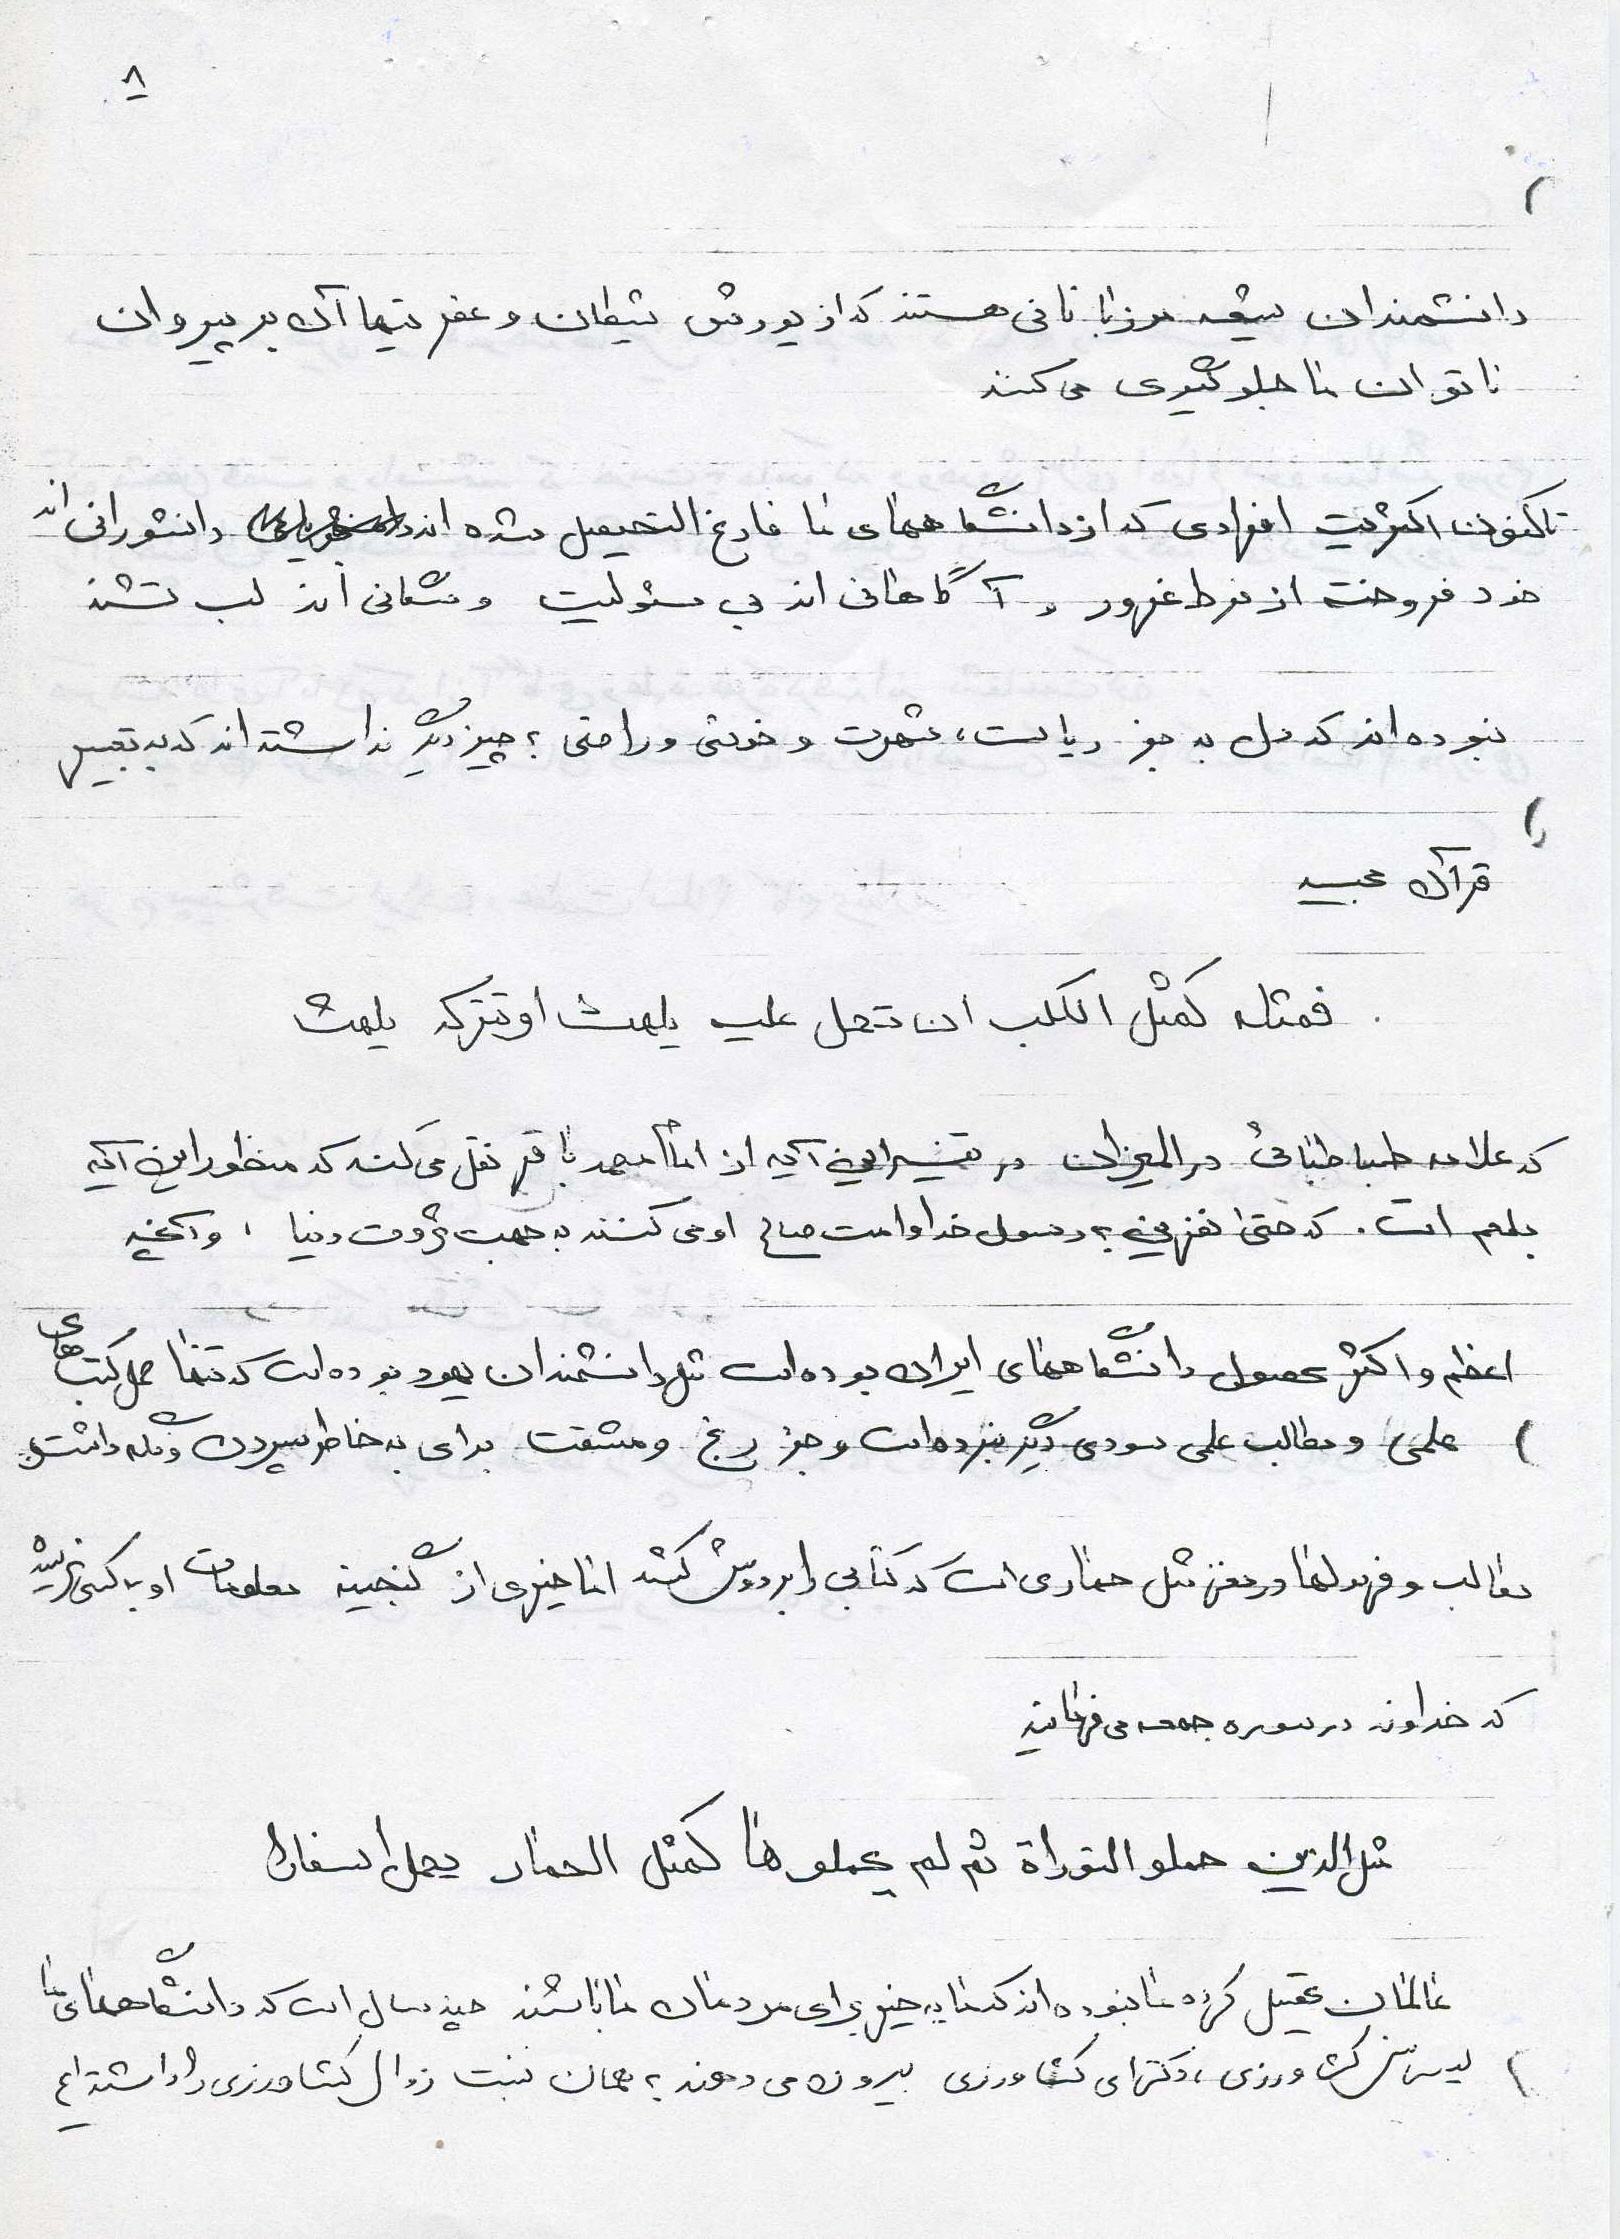 ۸
دانشمندان شیعه مرزبانانی هستند که از یورش شیطان و عفریتهای آن بر پیروان
ناتوان ما جلوگیری می کنند
تاکنون اکثریت افرادی که از دانشگاههای ما فارغ التحصیل شده اند دانشورانی اند
خود فروخته از فرط غرور و آگاهانی اند بی مسئولیت و مشعانی اند لب تشنه
نبوده اند که میل به جز ریاست، شهرت و خوشی و راحتی به چیز دیگر نداشته اند که به تعبیر
قرآن مجید
فمثله کمثل الکلب ان تحمل علیه یلهث او تترکه یلهث
که علامه طباطبائی در المیزان در تفسیر این آیه از امام محمد باقر نقل می کند که منظور این آیه
بلعم است. که حتی نفرین به رسول خدا و امت صالح او می کنند به جهت ثروت دنیا، و آنچه
اعظم و اکثر محصول دانشگاههای ایران بوده است مثل دانشمندان یهود بوده است که تنها حمل کتب های
علمی و مطالب علمی سودی دیگر نبرده است و جز رنج و مشقت برای به خاطر سپردن و نگه داشتن
مطالب و فرمولها در مغز مثل حماری است که کتابی را بر دوش کشد اما خیری از گنجینه معلومات او به کسی نرسد
که خداوند در سوره جمعه می فرماید
مثل الذین حملو التوراة ثم لم یحملوها کمثل الحمار یحمل اسفارا
عالمان تحصیل کرده ما نبوده اند که مایه خیر برای مردمان ما باشند چند سال است که دانشگاههای ما
لیسانس کشاورزی، دکترای کشاورزی بیرون می دهند به همان نسبت زوال کشاورزی را داشته ایم